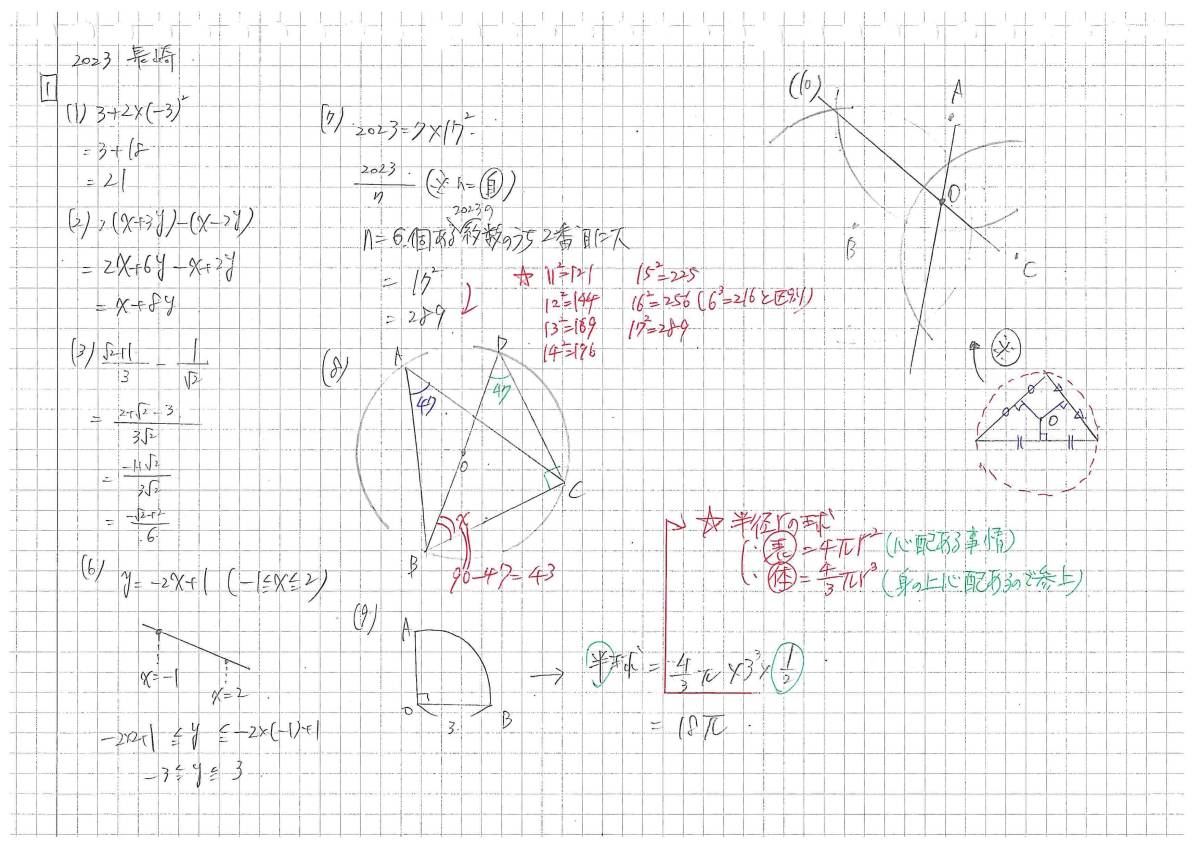 2023 長崎
1
(1) 3+2×(-3)²
= 3+18
= 21
(2) 2(x+3y)-(x-2y)
= 2x+6y-x+2y
= x+8y
(3) √2+1/3 - 1/√2
= 2+√2-3/3√2
= -1+√2/3√2
= -√2+2/6
(6) y=-2x+1 (-1≦x≦2)
x=-1
x=2
-2×2+1 ≦ y ≦ -2×(-1)+1
-3 ≦ y ≦ 3
(7) 2023=7×17²
2023/n (※ n=自)
2023の
n=6個ある約数のうち2番目に大
= 17²
= 289
☆ 11²=121 15²=225
12²=144 16²=256 (6³=216と区別)
13²=169 17²=289
14²=196
(8)
A
D
47
47
O
C
x
B
90-47=43
(9)
A
O
3
B
→ 半球 = 4/3 π ×3³× 1/2
= 18π
☆ 半径rの球
表 = 4πr² (心配ある事情)
体 = 4/3πr³ (身の上心配あるので参上)
(10)
A
O
B
C
※
O